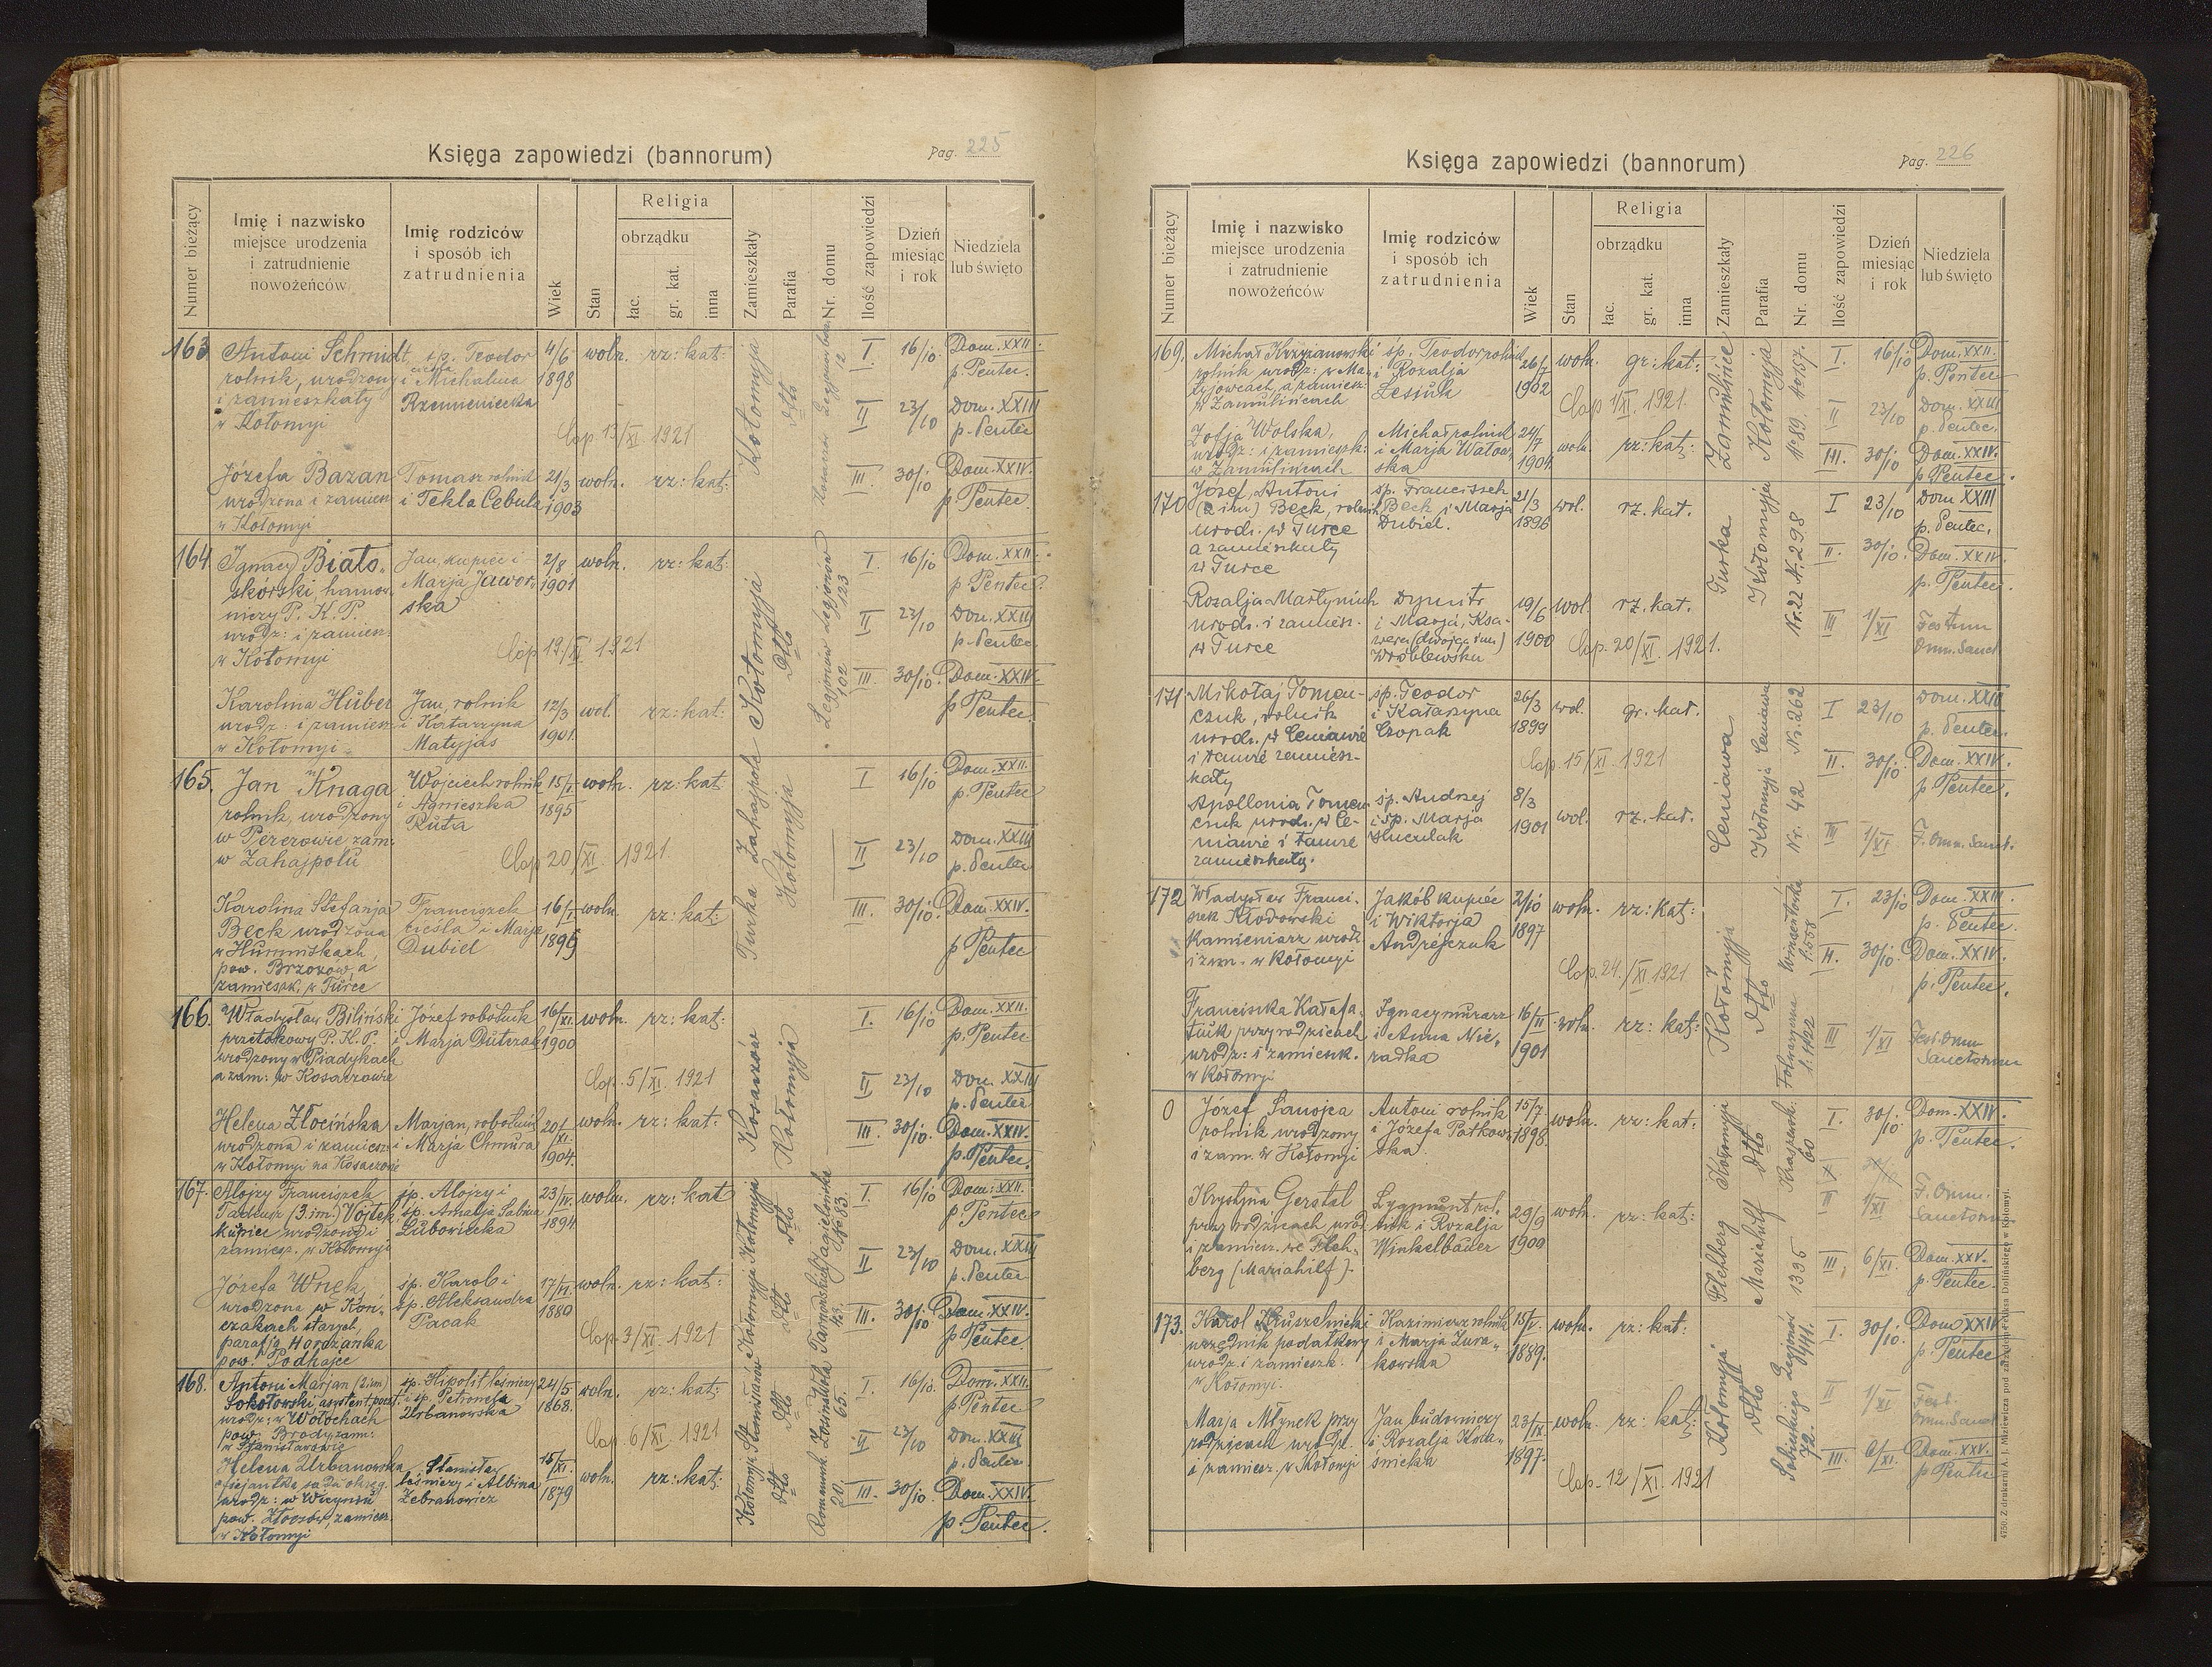 Księga zapowiedzi (bannorum)
Pag. 225
Numer bieżący
Imię i nazwisko
miejsce urodzenia
i zatrudnienie
nowożeńców
Imię rodziców
i sposób ich
zatrudnienia
Wiek
Stan
Religia
obrządku
łac.
gr. kat.
inna
Zamieszkały
Parafia
Nr. domu
Ilość zapowiedzi
Dzień
miesiąc
i rok
Niedziela
lub święto
163 Antoni Schmidt, sp. Teodor 4/6 woln. rz: kat: I. 16/10 Dom. XXII.
rolnik, urodzony i Michalina 1898 p. Pentec.
i zamieszkały Rzemieniecka
w Kołomyi
II 23/10 Dom. XXIII
p. Pentec
Cop 13/XI 1921
Józefa Bazan Tomasz rolnik 21/3 woln. rz: kat: III. 30/10 Dom. XXIV.
urodzona i zamiesz i Tekla Cebula 1903 p Pentec.
w Kołomyi
Kołomyja
dtto
164 Ignacy Biało- Jan, kupiec i 2/8 woln. rz: kat: I. 16/10 Dom. XXII.
skórski, hamow Marja Jawor- 1901 p. Pentec.
niczy P. K. P. ska
urodz: i zamiesz. II 23/10 Dom. XXIII
w Kołomyi p. Pentec.
Cop 19/XI 1921
III. 30/10. Dom. XXIV.
Karolina Huber Jan, rolnik 12/3 wol. rz: kat: p Pentec.
urodz: i zamiesz i Katarzyna 1901.
w Kołomyi Matyjas
Kołomyja
dtto
Legjonów 123
102
165. Jan Knaga Wojciech rolnik 15/I woln. rz: kat I 16/10 Dom. XXII.
rolnik, urodzony i Agnieszka 1895 p. Pentec
w Pererowie zam: Ruta
w Zahajpolu II 23/10 Dom. XXIII
Cop 20/XI. 1921. p. Pentec
Karolina Stefanja Franciszek 16/I woln. rz: kat: III. 30/10. Dom. XXIV.
Beck urodzona cieśla i Marja 1895 p Pentec
w Humniskach, Dubiel
pow. Brzozów, a
zamieszk. w Turce
Turka Zahajpole
Kołomyja
166. Władysław Biliński Józef robotnik 16/XI. woln. rz: kat: I. 16/10 Dom. XXII.
przetokowy P. K. P. i Marja Dutczak 1900 p. Pentec
urodzony w Piadykach
a zam: w Kosaczowie
Cop. 5/XI. 1921 II 23/10 Dom. XXIII
p. Pentec
Helena Złocińska Marjan, robotnik 20/XI. woln. rz: kat: III. 30/10. Dom. XXIV.
urodzona i zamiesz i Marja Chmura 1904. p. Pentec.
w Kołomyi na Kosaczowie
Kosaczów
Kołomyja
167. Alojzy Franciszek śp. Alojzy i 23/IV. woln. rz: kat I. 16/10 Dom: XXII.
Tadeusz (3. im.) Vojtek śp. Amalja Sabina 1894 p. Pentec
kupiec urodzony i Lubowiecka
zamiesz. w Kołomyi II 23/10 Dom. XXIII
p. Pentec
Józefa Wnęk, śp. Karol i 17/VI. woln. rz: kat:
urodzona w Koń- śp. Aleksandra 1880 III. 30/10 Dom. XXIV.
czakach starych, Pacak p. Pentec.
parafja Horożanka
pow. Podhajce
Cop. 3/XI. 1921
Kołomyja Kołomyja
dtto dtto
Tarnowskich Jagiellońska
43. N: 83.
168. Antoni Marjan (2. im) sp. Hipolit leśniczy 24/5 woln. rz: kat: I. 16/10. Dom. XXII.
Sokołowski asystent poczt. i sp. Petronela 1868. p Pentec
urodz: w Wołochach Urbanowska
pow. Brody, zam:
w Stanisławowie
Cop. 6/XI. 1921 II 23/10 Dom. XXIII
p. Pentec
Helena Urbanowska Stanisław 15/XI. woln. rz: kat: III. 30/10. Dom. XXIV.
sądu okręg. leśniczy i Albina 1879 p. Pentec.
urodz: w Żebrakowicz
pow. Złoczów, zamiesz.
w Kołomyi
Kołomyja Stanisławów
dtto dtto
Romanowsk. Zosina Wola
20. 65.
Księga zapowiedzi (bannorum)
Pag. 226
Numer bieżący
Imię i nazwisko
miejsce urodzenia
i zatrudnienie
nowożeńców
Imię rodziców
i sposób ich
zatrudnienia
Wiek
Stan
Religia
obrządku
łac.
gr. kat.
inna
Zamieszkały
Parafia
Nr. domu
Ilość zapowiedzi
Dzień
miesiąc
i rok
Niedziela
lub święto
169. Michał Krzyżanowski śp. Teodor rolnik 26/7 woln. gr: kat: I. 16/10 Dom. XXII.
rolnik urodz: w Ma- i Rozalja 1902 p. Pentec
tyjowcach, a zamiesz: Lesiuk
w Zamulińcach
Cop 1/XI. 1921 II 23/10 Dom. XXIII
p. Pentec.
Zofja Wolska, Michał rolnik 24/7 woln. rz: kat: III. 30/10 Dom. XXIV.
urodz: i zamieszk: i Marja Watow- 1904. p Pentec.
w Zamulińcach ska
Zamulińce
Kołomyja
No 89. No 157.
170 Józef, Antoni śp. Franciszek 21/3 wol. rz. kat. I 23/10 Dom XXIII
(2 im) Beck, rolnik Beck i Marja 1896 p. Pentec.
urodz. w Turce Dubiel.
a zamieszkały II. 30/10. Dom. XXIV.
w Turce p. Pentec.
Rozalja Martyniuk Dymitr 19/6 wol. rz. kat.
urodz. i zamiesz. i Marja, Ksa- 1900 III 1/XI Festum
w Turce wera (dwojga im.) Omn. Sanct
Wróblewska Cop. 20/XI. 1921.
Turka
Kołomyja
Nr. 22 N. 298
171 Mikołaj Tomen- śp. Teodor 26/3 wol. gr. kat. I 23/10 Dom. XXIII
czuk, rolnik i Katarzyna 1899 p. Pentec.
urodz. w Ceniawie Czopak
i tamże zamiesz- II. 30/10. Dom. XXIV.
kały Cop. 15/XI. 1921 p. Pentec.
Apollonia Tomen śp. Andrzej 8/3 wol. rz. kat.
czuk urodz. w Ce- i śp. Marja 1901 III 1/XI F. Omn. Sanct.
niawie i tamże Huculak
zamieszkała.
Ceniawa
Kołomyja Ceniawa
Nr. 42 Nr. 262
172 Władysław Franci- Jakób kupiec 2/10 woln. rz: kat: I. 23/10 Dom. XXIII.
szek Kłodowski i Wiktorja 1897 p. Pentec.
kamieniarz urodz Andrejczuk
i zam. w Kołomyi II. 30/10. Dom. XXIV.
Cop. 24./XI 1921 p. Pentec.
Franciszka Kałafa- Ignacy murarz 16/II woln. rz: kat:
tiuk przy rodzicach i Anna Nie- 1901 III 1/XI Fest. Omn
urodz: i zamieszk. radka Sanctorum
w Kołomyi
Kołomyja
dtto
0 Józef Sanojca Antoni rolnik 15/7 woln. rz: kat: I. 30/10. Dom. XXIV.
rolnik urodzony i Józefa Patkow- 1898. p. Pentec.
i zam. w Kołomyi ska
Krystyna Gerstel Zygmunt rol- 29/9 woln. rz: kat: II 1/XI F. Omn.
przy rodzicach urodz. nik i Rozalja 1900 Sanctorum
i zamiesz. we Fleh- Winkelbauer
berg (Mariahilf). III. 6/XI. Dom. XXV.
p. Pentec.
Flehberg Kołomyja
Mariahilf dtto
1335 60
173. Karol Kruszelnicki Kazimierz rolnik 15/V. woln. rz: kat: I. 30/10. Dom XXIV
urzędnik podatkowy i Marja Żura- 1889. p. Pentec
urodz. i zamieszk. kowska
w Kołomyi. II 1/XI Fest.
Omn. Sanct
Marja Młynek przy Jan, budowniczy 23/IX woln. rz: kat:
rodzicach urodz. i Rozalja Kwa- 1897. III. 6/XI. Dom. XXV.
i zamiesz. w Kołomyi śnicka p Pentec
Cop. 12/XI. 1921
Kołomyja
dtto
Sobieskiego 72.
4750. Z drukarni A. J. Miziewicza pod zarządem Feliksa Dolińskiego w Kołomyi.